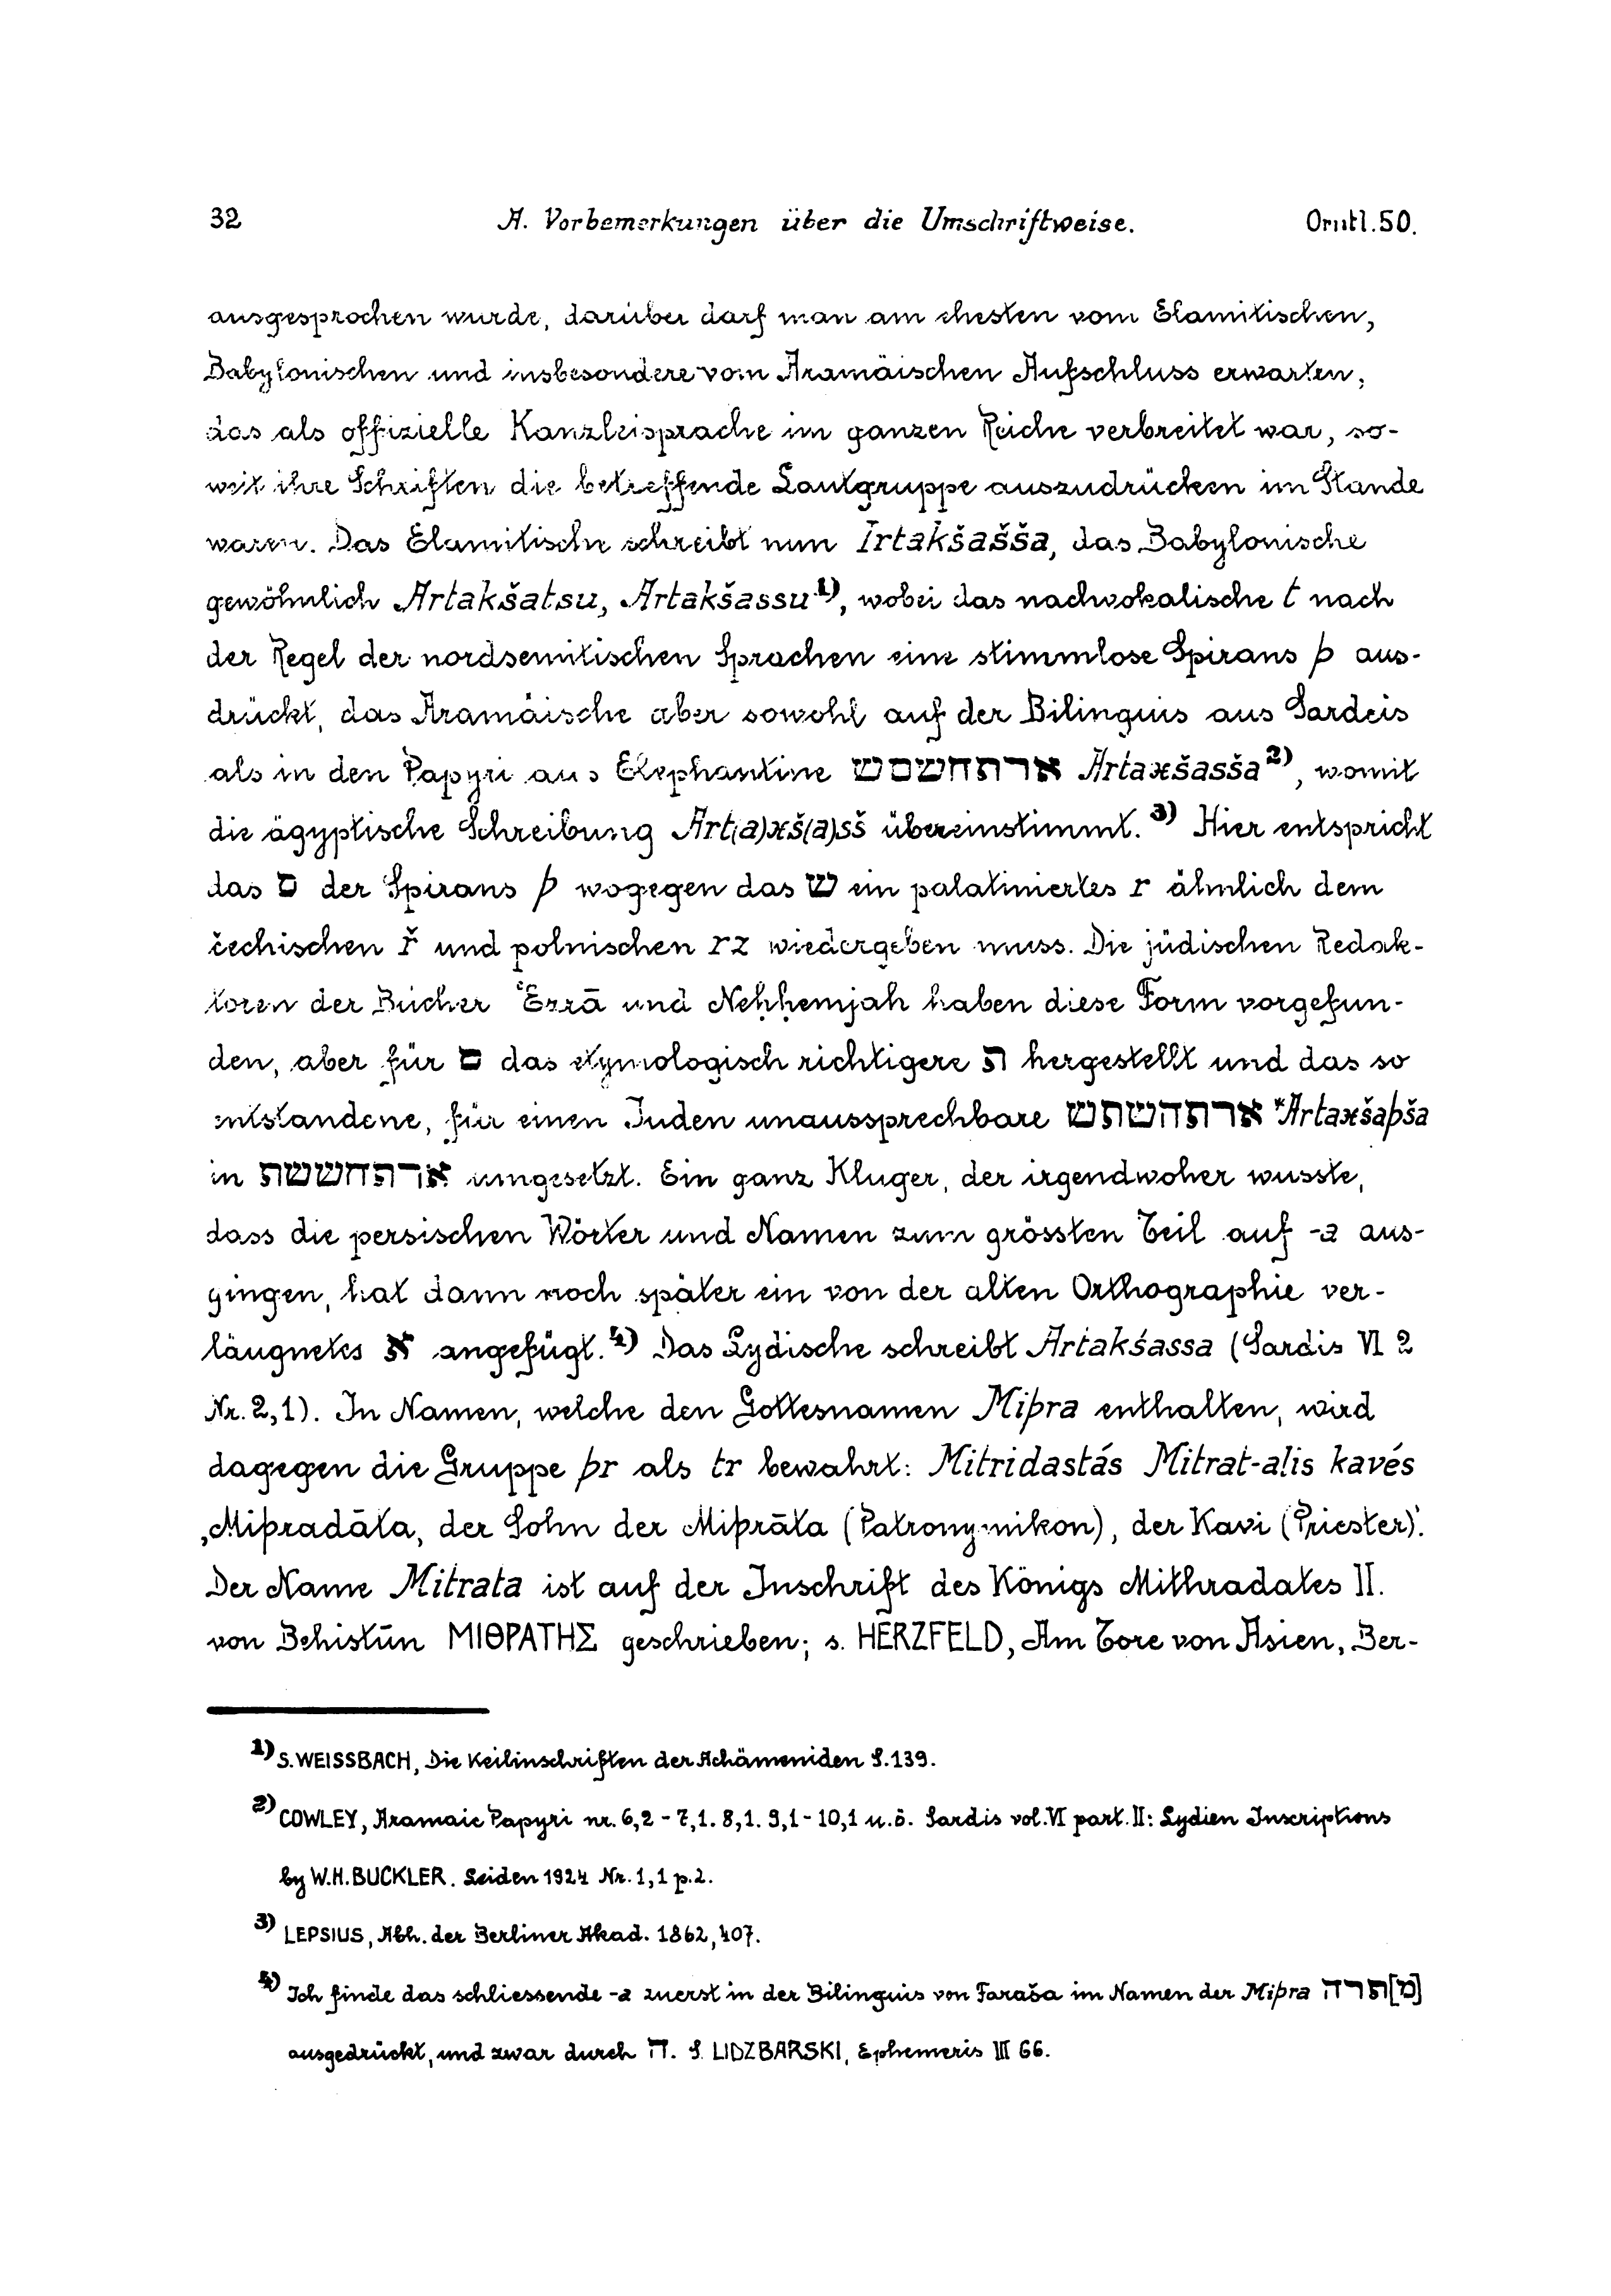 32 A. Vorbemerkungen über die Umschriftweise. Orntl.50.
ausgesprochen wurde, darüber darf man am ehesten vom Elamitischen,
Babylonischen und insbesondere vom Aramäischen Aufschluss erwarten,
das als offizielle Kanzleisprache im ganzen Reiche verbreitet war, so-
weit ihre Schriften die betreffende Lautgruppe auszudrücken im Stande
waren. Das Elamitische schreibt nun Irtakšašša, das Babylonische
gewöhnlich Artakšatsu, Artakšassu¹⁾, wobei das nachvokalische t nach
der Regel der nordsemitischen Sprachen eine stimmlose Spirans þ aus-
drückt, das Aramäische aber sowohl auf der Bilinguis aus Sardeis
als in den Papyri aus Elephantine ארתחשסש Artaxšasša²⁾, womit
die ägyptische Schreibung Art(a)xš(a)sš übereinstimmt.³⁾ Hier entspricht
das ס der Spirans þ wogegen das ש ein palatiniertes r ähnlich dem
čechischen ř und polnischen rz wiedergeben muss. Die jüdischen Redak-
toren der Bücher ʿEzrā und Neḥḥemjah haben diese Form vorgefun-
den, aber für ס das etymologisch richtigere ת hergestellt und das so
entstandene, für einen Juden unaussprechbare ארתהשתש *Artaxšaþša
in ארתחששת umgesetzt. Ein ganz Kluger, der irgendwoher wusste,
dass die persischen Wörter und Namen zum grössten Teil auf -a aus-
gingen, hat dann noch später ein von der alten Orthographie ver-
läugnetes א angefügt.⁴⁾ Das Lydische schreibt Artakśassa (Sardis VI 2
Nr. 2,1). In Namen, welche den Gottesnamen Miþra enthalten, wird
dagegen die Gruppe þr als tr bewahrt: Mitridastás Mitrat-aḷis kavés
‚Miþradāta, der Sohn der Miþrāta (Patronymikon), der Kavi (Priester)‘.
Der Name Mitrata ist auf der Inschrift des Königs Mithradates II.
von Behistūn ΜΙΘΡΑΤΗΣ geschrieben; s. HERZFELD, Am Tore von Asien, Ber-
¹⁾ S. WEISSBACH, Die Keilinschriften der Achämeniden S.139.
²⁾ COWLEY, Aramaic Papyri nr. 6,2 - 7,1. 8,1. 9,1 - 10,1 u.ö. Sardis vol.VI part.II: Lydien Inscriptions
by W.H.BUCKLER. Leiden 1924 Nr. 1,1 p.2.
³⁾ LEPSIUS, Abh. der Berliner Akad. 1862, 407.
⁴⁾ Ich finde das schliessende -a zuerst in der Bilinguis von Faraša im Namen der Miþra מ]תרה]
ausgedrückt, und zwar durch ה. S. LIDZBARSKI, Ephemeris III 66.